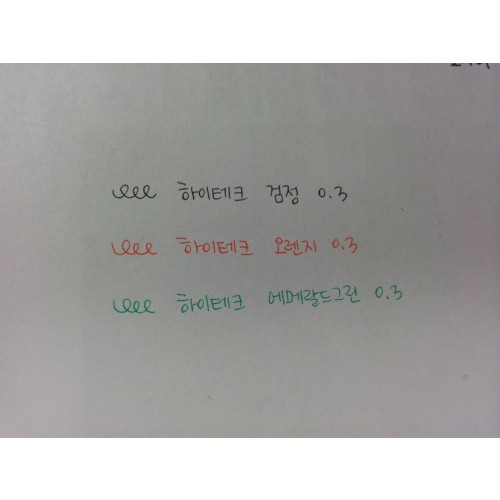 하이테크 검정 0.3
하이테크 오렌지 0.3
하이테크 에메랄드그린 0.3